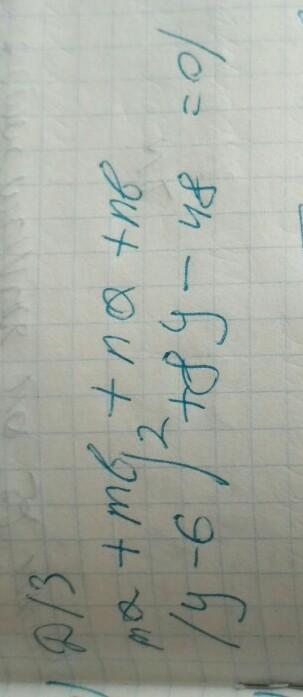 Д/З
ma + mb + na + nb
(y - 6)² + 8y - 48 = 0